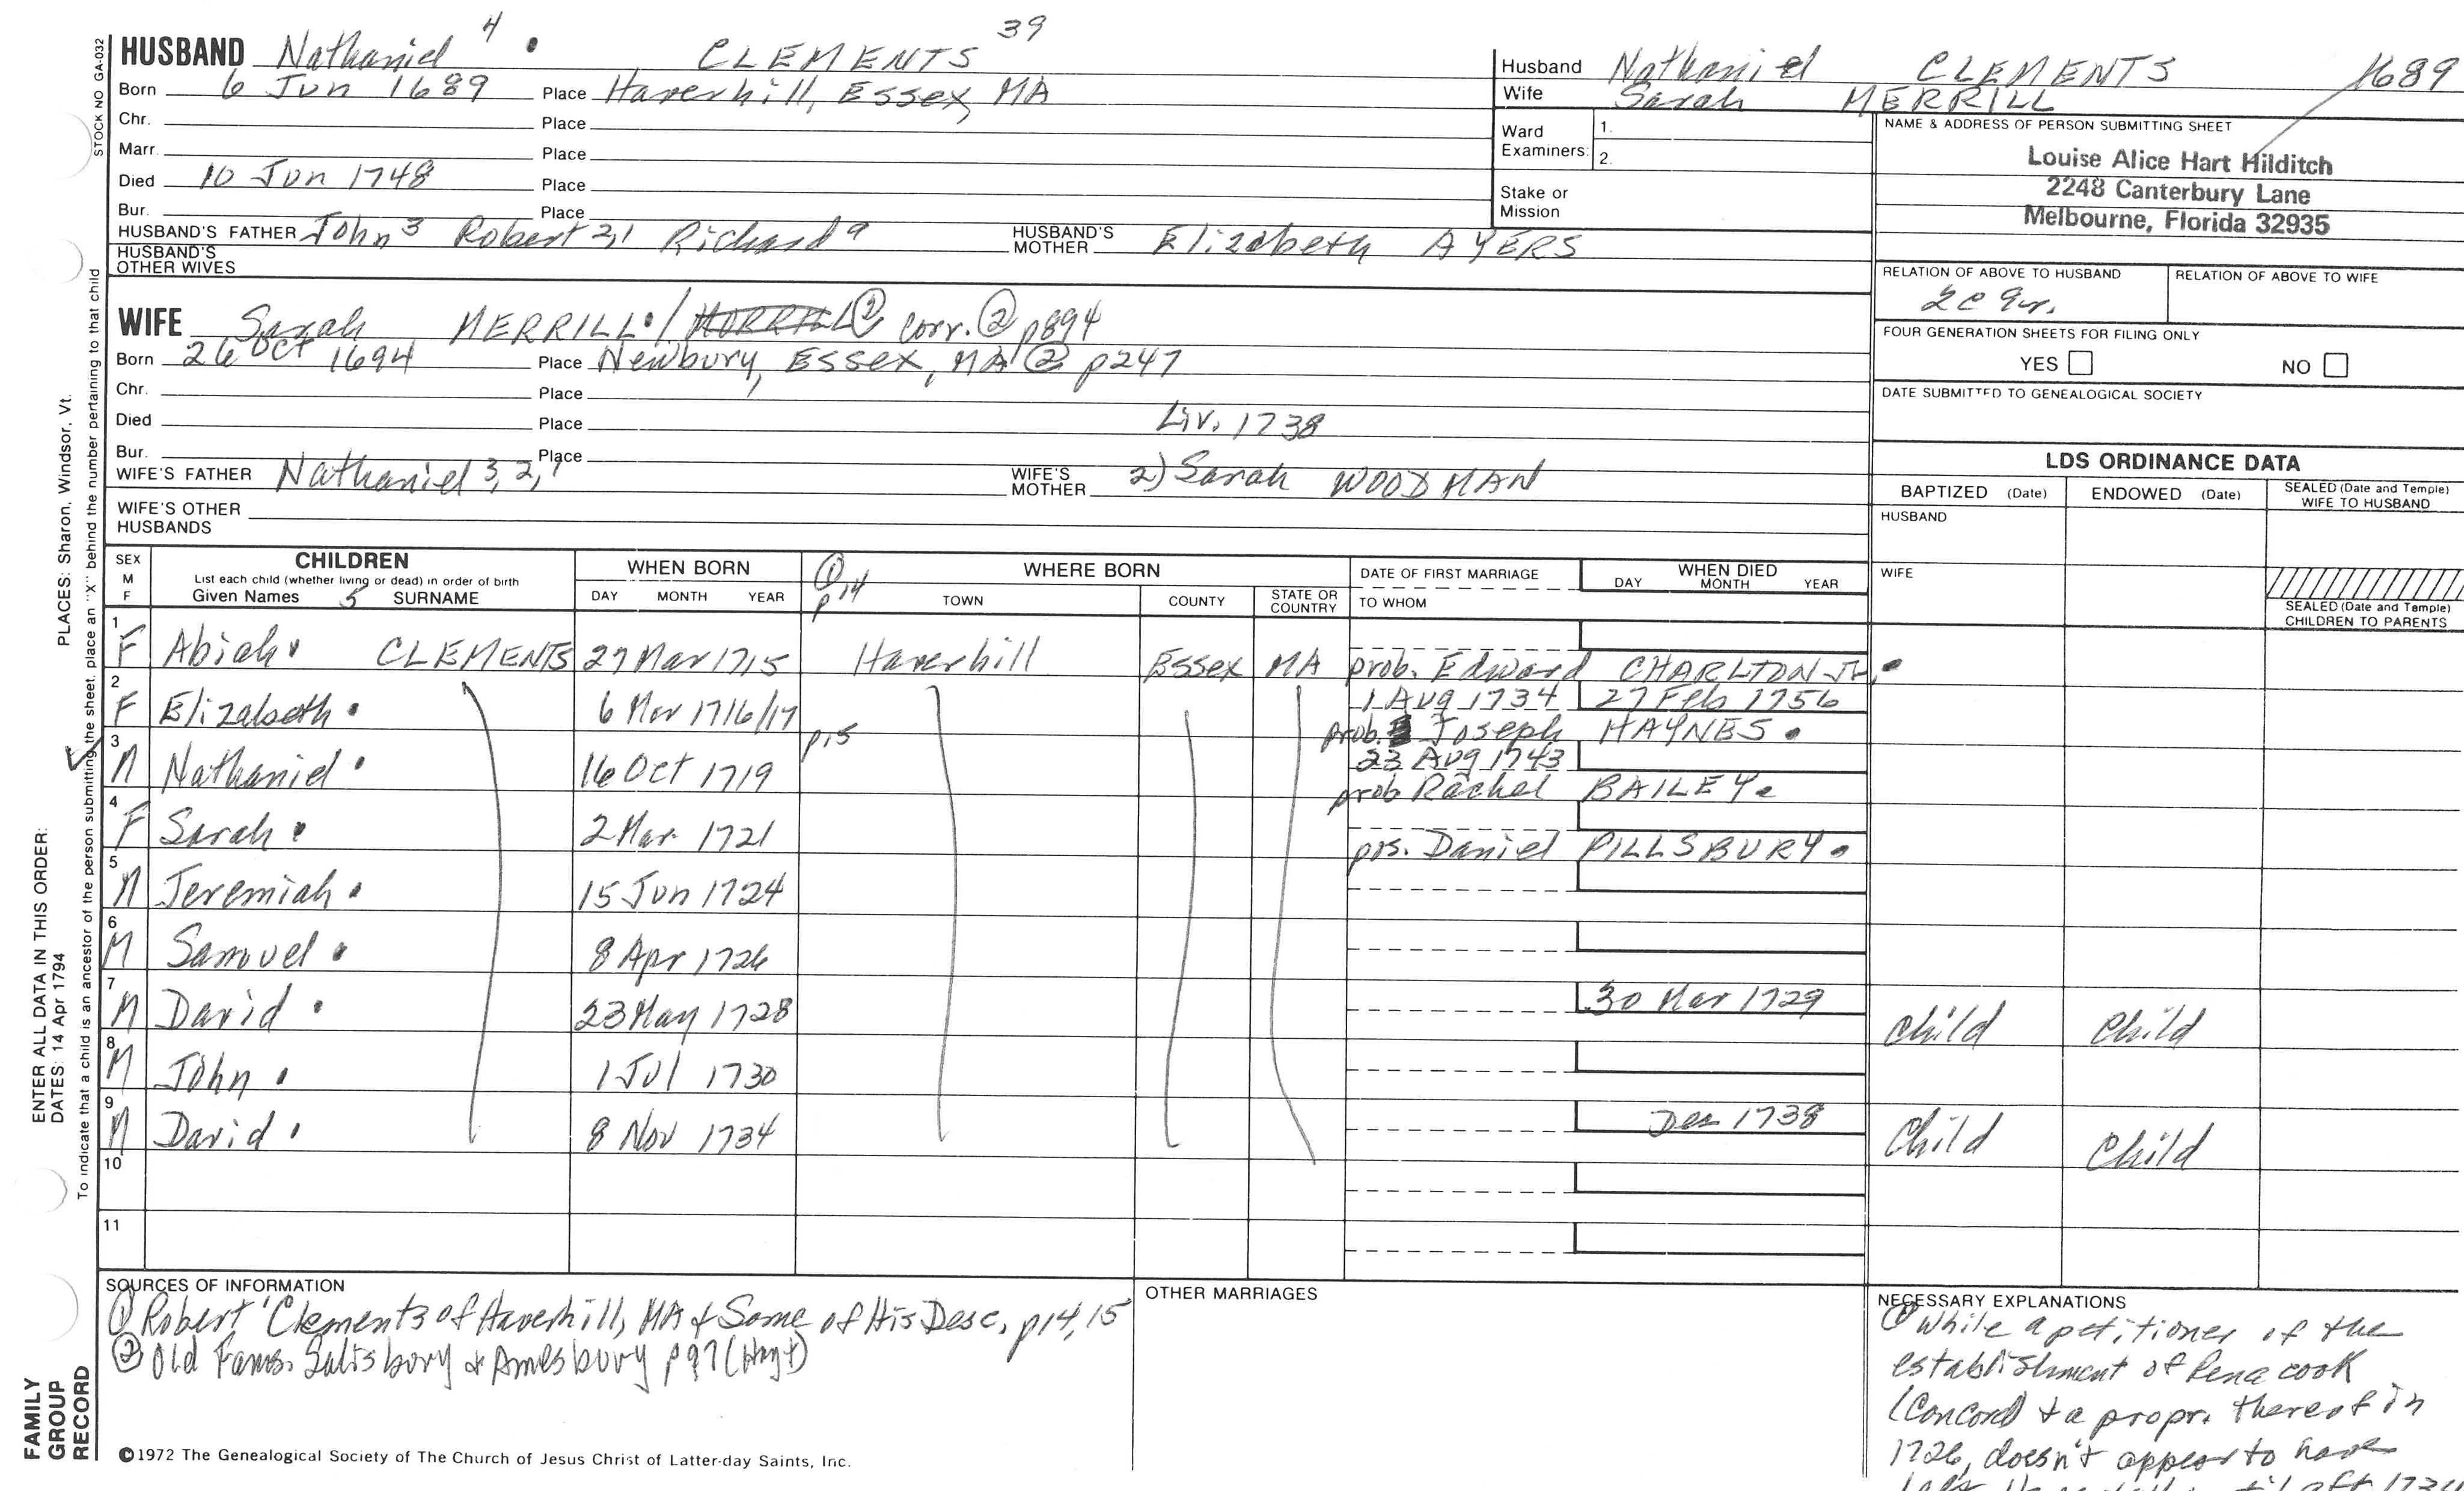 STOCK NO GA-032
PLACES: Sharon, Windsor, Vt.
ENTER ALL DATA IN THIS ORDER:
DATES: 14 Apr 1794
To indicate that a child is an ancestor of the person submitting the sheet, place an "X" behind the number pertaining to that child
FAMILY
GROUP
RECORD
HUSBAND Nathaniel 4 CLEMENTS 39
Born 6 Jun 1689 Place Haverhill, Essex, MA
Chr. Place
Marr. Place
Died 10 Jun 1748 Place
Bur. Place
HUSBAND'S FATHER John 3 Robert 2,1 Richard a HUSBAND'S MOTHER Elizabeth AYERS
HUSBAND'S
OTHER WIVES
WIFE Sarah MERRILL / MORRILL ② corr. ② p894
Born 26 Oct 1694 Place Newbury, Essex, MA ② p247
Chr. Place
Died Place Liv. 1738
Bur. Place
WIFE'S FATHER Nathaniel 3, 2, 1 WIFE'S MOTHER 2) Sarah WOODMAN
WIFE'S OTHER
HUSBANDS
Husband Nathaniel CLEMENTS 1689
Wife Sarah MERRILL
Ward
Examiners: 1.
2.
Stake or
Mission
NAME & ADDRESS OF PERSON SUBMITTING SHEET
Louise Alice Hart Hilditch
2248 Canterbury Lane
Melbourne, Florida 32935
RELATION OF ABOVE TO HUSBAND RELATION OF ABOVE TO WIFE
FOUR GENERATION SHEETS FOR FILING ONLY
YES NO
DATE SUBMITTED TO GENEALOGICAL SOCIETY
LDS ORDINANCE DATA
BAPTIZED (Date) ENDOWED (Date) SEALED (Date and Temple) WIFE TO HUSBAND
HUSBAND
WIFE
SEALED (Date and Temple)
CHILDREN TO PARENTS
SEX M F CHILDREN WHEN BORN ① p14 WHERE BORN DATE OF FIRST MARRIAGE WHEN DIED
List each child (whether living or dead) in order of birth DAY MONTH YEAR
Given Names 5 SURNAME DAY MONTH YEAR TOWN COUNTY STATE OR COUNTRY TO WHOM
1 F Abiah CLEMENTS 27 Mar 1715 Haverhill Essex MA prob. Edward CHARLTON Jr.
2 F Elizabeth 6 Mar 1716/17 1 Aug 1734 27 Feb 1756
prob. Joseph HAYNES
3 M Nathaniel 16 Oct 1719 p15 23 Aug 1743
prob Rachel BAILEY
4 F Sarah 2 Mar 1721 pos. Daniel PILLSBURY
5 M Jeremiah 15 Jun 1724
6 M Samuel 8 Apr 1726
7 M David 23 May 1728 30 Mar 1729 Child Child
8 M John 1 Jul 1730
9 M David 8 Nov 1734 Dec 1738 Child Child
10
11
SOURCES OF INFORMATION
① Robert 1 Clements of Haverhill, MA & Some of His Desc, p14, 15
② Old Fams. Salisbury & Amesbury p97 (Hoyt)
OTHER MARRIAGES
NECESSARY EXPLANATIONS
① While a petitioner of the
establishment of Penacook
(Concord & a propr. thereof in
1726, doesn't appear to have
©1972 The Genealogical Society of The Church of Jesus Christ of Latter-day Saints, Inc.